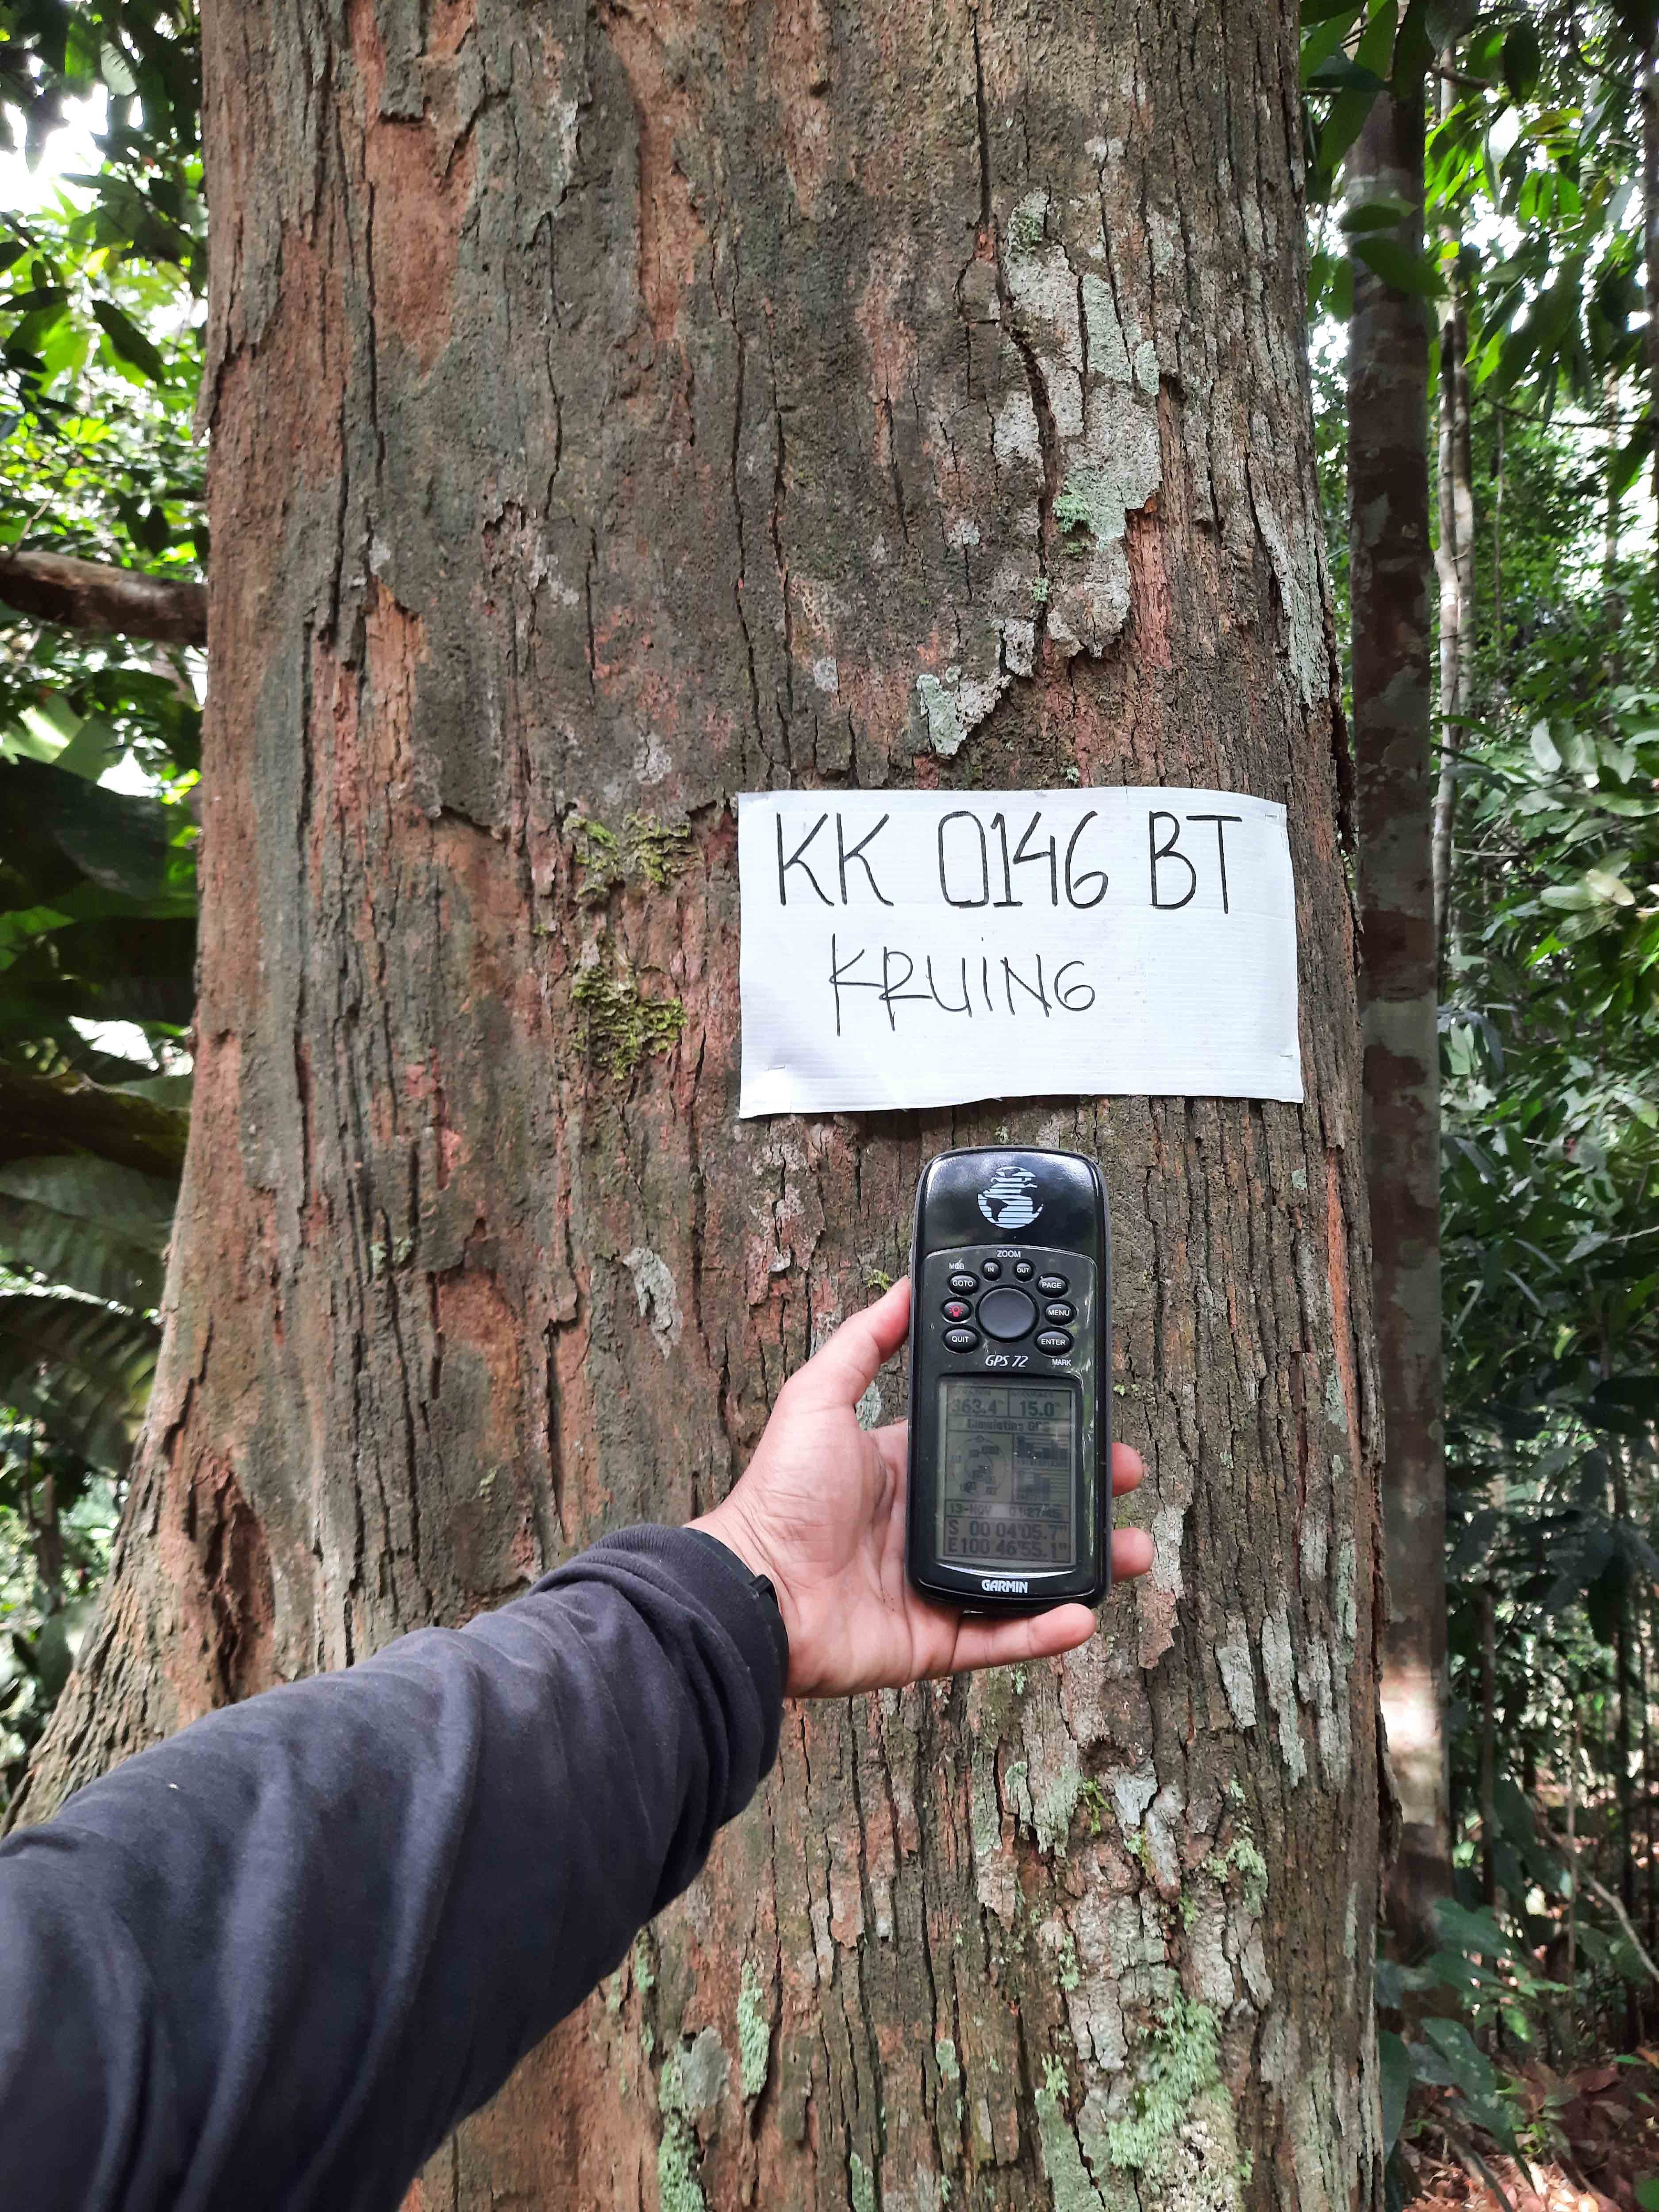 KK 0146 BT
KRUING
ZOOM
MOB IN OUT
GOTO PAGE
MENU
QUIT ENTER
GPS 72 MARK
363.4 15.0
Simulating GPS
13-NOV 01:27:45
S 00 04'05.7"
E100 46'55.1"
GARMIN